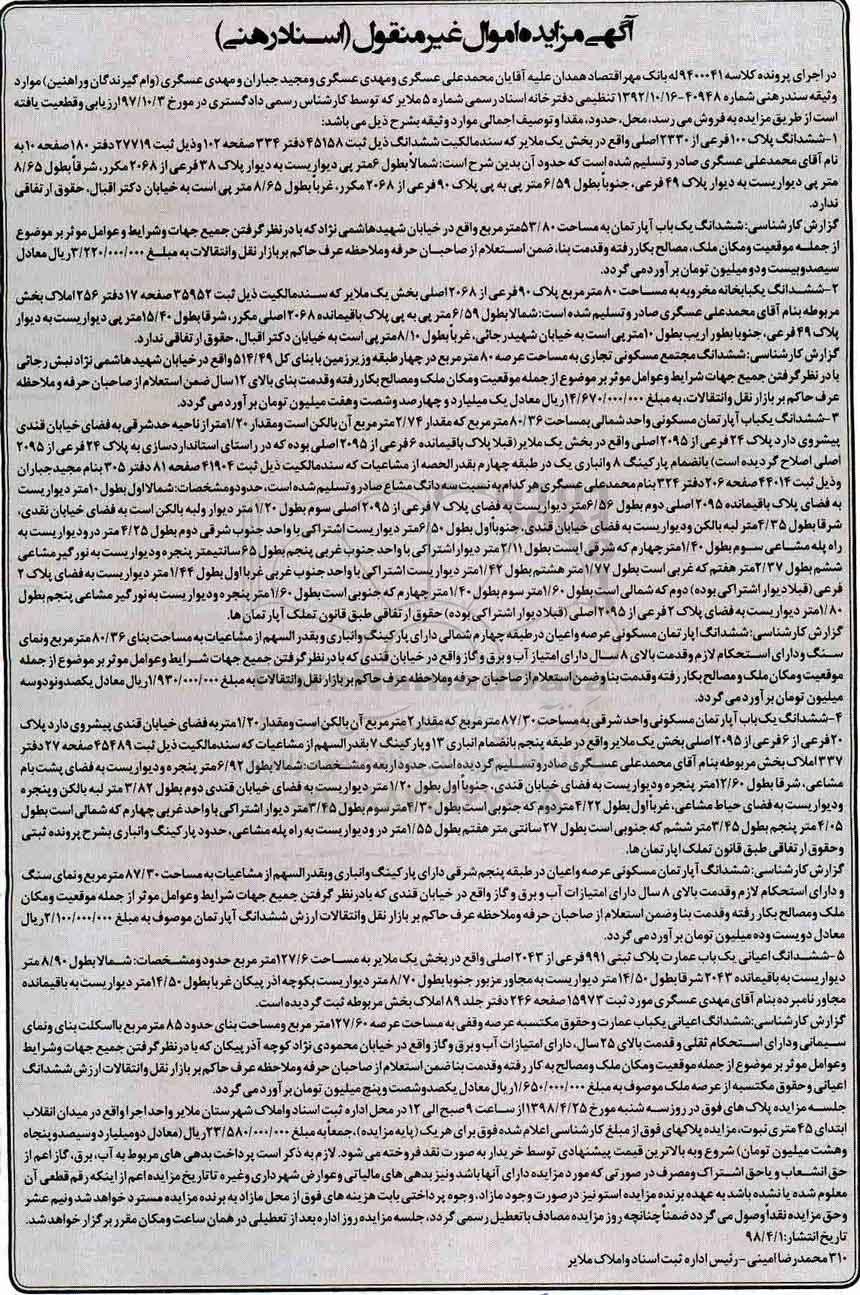 آگهی مزایده اموال غیر منقول (اسناد رهنی)
در اجرای پرونده کلاسه ۹۴۰۰۰۴۱ له بانک مهر اقتصاد همدان علیه آقایان محمدعلی عسگری و مهدی عسگری و مجید جباران و مهدی عسگری (وام گیرندگان و راهنین) موارد
وثیقه سند رهنی شماره ۴۰۹۴۸-۱۳۹۲/۱۰/۱۶ تنظیمی دفترخانه اسناد رسمی شماره ۵ ملایر که توسط کارشناس رسمی دادگستری در مورخ ۹۷/۱۰/۳ ارزیابی و قطعیت یافته
است از طریق مزایده به فروش می رسد، محل، حدود، مقدار و توصیف اجمالی موارد وثیقه بشرح ذیل می باشد:
۱-ششدانگ پلاک ۱۰۰ فرعی از ۲۳۳۰ اصلی واقع در بخش یک ملایر که سند مالکیت ششدانگ ذیل ثبت ۴۵۱۵۸ دفتر ۳۳۴ صفحه ۱۰۲ و ذیل ثبت ۲۷۷۱۹ دفتر ۱۸۰ صفحه ۱۰ به
نام آقای محمدعلی عسگری صادر و تسلیم شده است که حدود آن بدین شرح است: شمالاً بطول ۶ متر پی دیواریست به دیوار پلاک ۳۸ فرعی از ۲۰۶۸ مکرر، شرقاً بطول ۸/۶۵
متر پی دیواریست به دیوار پلاک ۴۹ فرعی، جنوباً بطول ۶/۵۹ متر پی به پی پلاک ۹۰ فرعی از ۲۰۶۸ مکرر، غرباً بطول ۸/۶۵ متر پی است به خیابان دکتر اقبال، حقوق ارتفاقی
ندارد.
گزارش کارشناسی: ششدانگ یک باب آپارتمان به مساحت ۵۳/۸۰ متر مربع واقع در خیابان شهید هاشمی نژاد که با در نظر گرفتن جمیع جهات و شرایط و عوامل موثر بر موضوع
از جمله موقعیت و مکان ملک، مصالح بکار رفته و قدمت بنا، ضمن استعلام از صاحبان حرفه و ملاحظه عرف حاکم بر بازار نقل و انتقالات به مبلغ ۳/۲۲۰/۰۰۰/۰۰۰ ریال معادل
سیصد و بیست و دو میلیون تومان برآورد می گردد.
۲-ششدانگ یکبابخانه مخروبه به مساحت ۸۰ متر مربع پلاک ۹۰ فرعی از ۲۰۶۸ اصلی بخش یک ملایر که سند مالکیت ذیل ثبت ۳۵۹۵۲ صفحه ۱۷ دفتر ۲۵۶ املاک بخش
مربوطه بنام آقای محمدعلی عسگری صادر و تسلیم شده است: شمالا بطول ۶/۵۹ متر پی به پی پلاک باقیمانده ۲۰۶۸ اصلی مکرر، شرقا بطول ۱۵/۴۰ متر پی دیواریست به دیوار
پلاک ۴۹ فرعی، جنوبا بطور اریب بطول ۱۰ متر پی است به خیابان شهید رجائی، غرباً بطول ۸/۱۰ متر پی است به خیابان دکتر اقبال، حقوق ارتفاقی ندارد.
گزارش کارشناسی: ششدانگ مجتمع مسکونی تجاری به مساحت عرصه ۸۰ متر مربع در چهار طبقه و زیرزمین با بنای کل ۵۱۴/۴۹ واقع در خیابان شهید هاشمی نژاد نبش رجائی
با در نظر گرفتن جمیع جهات شرایط و عوامل موثر بر موضوع از جمله موقعیت و مکان ملک و مصالح بکار رفته و قدمت بنای بالای ۱۲ سال ضمن استعلام از صاحبان حرفه و ملاحظه
عرف حاکم بر بازار نقل و انتقالات، به مبلغ ۱۴/۶۷۰/۰۰۰/۰۰۰ ریال معادل یک میلیارد و چهارصد و شصت و هفت میلیون تومان برآورد می گردد.
۳-ششدانگ یکباب آپارتمان مسکونی واحد شمالی بمساحت ۸۰/۳۶ متر مربع که مقدار ۲/۷۴ متر مربع آن بالکن است و مقدار ۱/۲۰ متر از ناحیه حد شرقی به فضای خیابان قندی
پیشروی دارد پلاک ۲۴ فرعی از ۲۰۹۵ اصلی واقع در بخش یک ملایر (قبلا پلاک باقیمانده ۶ فرعی از ۲۰۹۵ اصلی بوده که در راستای استاندارد سازی به پلاک ۲۴ فرعی از ۲۰۹۵
اصلی اصلاح گردیده است) بانضمام پارکینگ ۸ و انباری یک در طبقه چهارم بقدر الحصه از مشاعیات که سند مالکیت ذیل ثبت ۴۱۹۰۴ صفحه ۸۱ دفتر ۳۰۵ بنام مجید جباران
و ذیل ثبت ۴۴۰۱۴ صفحه ۲۰۶ دفتر ۳۲۴ بنام محمدعلی عسگری هر کدام به نسبت سه دانگ مشاع صادر و تسلیم شده است، حدود و مشخصات: شمالا اول بطول ۱۰ متر دیواریست
به فضای پلاک باقیمانده ۲۰۹۵ اصلی دوم بطول ۶/۵۶ متر دیواریست به فضای پلاک ۷ فرعی از ۲۰۹۵ اصلی سوم بطول ۱/۲۰ متر دیوار ولبه بالکن است به فضای خیابان نقدی،
شرقا بطول ۴/۳۵ متر لبه بالکن و دیواریست به فضای خیابان قندی، جنوباً اول بطول ۶/۵۰ متر دیواریست اشتراکی با واحد جنوب شرقی دوم بطول ۴/۲۵ متر در و دیواریست به
راه پله مشاعی سوم بطول ۱/۴۰ متر چهارم که شرقی ایست بطول ۲/۱۱ متر دیوار اشتراکی با واحد جنوب غربی پنجم بطول ۶۵ سانتیمتر پنجره و دیواریست به نورگیر مشاعی
ششم بطول ۲/۳۷ متر هفتم که غربی است بطول ۱/۷۷ متر هشتم بطول ۱/۴۲ متر دیواریست اشتراکی با واحد جنوب غربی غرباً اول بطول ۱/۴۴ متر دیواریست به فضای پلاک ۲
فرعی (قبلا دیوار اشتراکی بوده) دوم که شمالی است بطول ۱/۶۰ متر سوم بطول ۱/۴۰ متر چهارم که جنوبی است بطول ۱/۶۰ متر پنجره و دیواریست به نورگیر مشاعی پنجم بطول
۱/۸۰ متر دیواریست به فضای پلاک ۲ فرعی از ۲۰۹۵ اصلی (قبلا دیوار اشتراکی بوده) حقوق ارتفاقی طبق قانون تملک آپارتمان ها.
گزارش کارشناسی: ششدانگ آپارتمان مسکونی عرصه واعیان در طبقه چهارم شمالی دارای پارکینگ و انباری و بقدر السهم از مشاعیات به مساحت بنای ۸۰/۳۶ متر مربع و نمای
سنگ و دارای استحکام لازم و قدمت بالای ۸ سال دارای امتیاز آب و برق و گاز واقع در خیابان قندی که با در نظر گرفتن جمیع جهات شرایط و عوامل موثر بر موضوع از جمله
موقعیت و مکان ملک و مصالح بکار رفته و قدمت بنا و ضمن استعلام از صاحبان حرفه و ملاحظه عرف حاکم بر بازار نقل و انتقالات به مبلغ ۱/۹۳۰/۰۰۰/۰۰۰ ریال معادل یکصد و نود و سه
میلیون تومان برآورد می گردد.
۴-ششدانگ یک باب آپارتمان مسکونی واحد شرقی به مساحت ۸۷/۳۰ متر مربع که مقدار ۲ متر مربع آن بالکن است و مقدار ۱/۲۰ متر به فضای خیابان قندی پیشروی دارد پلاک
۲۰ فرعی از ۶ فرعی از ۲۰۹۵ اصلی بخش یک ملایر واقع در طبقه پنجم بانضمام انباری ۱۳ و پارکینگ ۷ بقدر السهم از مشاعیات که سند مالکیت ذیل ثبت ۴۵۴۸۹ صفحه ۲۷ دفتر
۳۳۷ املاک بخش مربوطه بنام آقای محمدعلی عسگری صادر و تسلیم گردیده است، حدود اربعه و مشخصات: شمالا بطول ۶/۹۲ متر پنجره و دیواریست به فضای پشت بام
مشاعی، شرقا بطول ۱۲/۶۰ متر پنجره و دیواریست به فضای خیابان قندی، جنوباً اول بطول ۱/۲۰ متر دیواریست به فضای خیابان قندی دوم بطول ۳/۸۲ متر لبه بالکن و پنجره
و دیواریست به فضای حیاط مشاعی، غرباً اول بطول ۴/۲۲ متر دوم که جنوبی است بطول ۴/۳۰ متر سوم بطول ۳/۴۵ متر دیوار اشتراکی با واحد غربی چهارم که شمالی است بطول
۴/۰۵ متر پنجم بطول ۳/۴۵ متر ششم که جنوبی است بطول ۲۷ سانتی متر هفتم بطول ۱/۵۵ متر در و دیواریست به راه پله مشاعی، حدود پارکینگ و انباری بشرح پرونده ثبتی
و حقوق ارتفاقی طبق قانون تملک آپارتمان ها.
گزارش کارشناسی: ششدانگ آپارتمان مسکونی عرصه و اعیان در طبقه پنجم شرقی دارای پارکینگ و انباری و بقدر السهم از مشاعیات به مساحت ۸۷/۳۰ متر مربع و نمای سنگ
و دارای استحکام لازم و قدمت بالای ۸ سال دارای امتیازات آب و برق و گاز واقع در خیابان قندی که با در نظر گرفتن جمیع جهات شرایط و عوامل موثر از جمله موقعیت و مکان
ملک و مصالح بکار رفته و قدمت بنا و ضمن استعلام از صاحبان حرفه و ملاحظه عرف حاکم بر بازار نقل و انتقالات ارزش ششدانگ آپارتمان موصوف به مبلغ ۲/۱۰۰/۰۰۰/۰۰۰ ریال
معادل دویست و ده میلیون تومان برآورد می گردد.
۵-ششدانگ اعیانی یک باب عمارت پلاک ثبتی ۹۹۱ فرعی از ۲۰۴۳ اصلی واقع در بخش یک ملایر به مساحت ۱۲۷/۶ متر مربع حدود و مشخصات: شمالا بطول ۸/۹۰ متر
دیواریست به باقیمانده ۲۰۴۳ شرقا بطول ۱۴/۵۰ متر دیواریست به مجاور مزبور جنوبا بطول ۸/۷۰ متر دیواریست بکوچه آذر پیکان غربا بطول ۱۴/۵۰ متر دیواریست به باقیمانده
مجاور نامبرده بنام آقای مهدی عسگری مورد ثبت ۱۵۹۷۳ صفحه ۲۴۶ دفتر جلد ۸۹ املاک بخش مربوطه ثبت گردیده است.
گزارش کارشناسی: ششدانگ اعیانی یکباب عمارت و حقوق مکتسبه عرصه وقفی به مساحت عرصه ۱۲۷/۶۰ متر مربع و مساحت بنای حدود ۸۵ متر مربع با اسکلت بنای و نمای
سیمانی و دارای استحکام ثقلی و قدمت بالای ۲۵ سال، دارای امتیازات آب و برق و گاز واقع در خیابان محمودی نژاد کوچه آذر پیکان که با در نظر گرفتن جمیع جهات و شرایط
و عوامل موثر بر موضوع از جمله موقعیت و مکان ملک و مصالح به کار رفته و قدمت بنا ضمن استعلام از صاحبان حرفه و ملاحظه عرف حاکم بر بازار نقل و انتقالات ارزش ششدانگ
اعیانی و حقوق مکتسبه از عرصه ملک موصوف به مبلغ ۱/۶۵۰/۰۰۰/۰۰۰ ریال معادل یکصد و شصت و پنج میلیون تومان برآورد می گردد.
جلسه مزایده پلاک های فوق در روز سه شنبه مورخ ۱۳۹۸/۴/۲۵ از ساعت ۹ صبح الی ۱۲ در محل اداره ثبت اسناد و املاک شهرستان ملایر واحد اجرا واقع در میدان انقلاب
ابتدای ۴۵ متری نبوت، مزایده پلاکهای فوق از مبلغ کارشناسی اعلام شده فوق برای هر یک (پایه مزایده)، جمعاً به مبلغ ۲۳/۵۸۰/۰۰۰/۰۰۰ ریال (معادل دو میلیارد و سیصد و پنجاه
و هشت میلیون تومان) شروع و به بالاترین قیمت پیشنهادی توسط خریدار به صورت نقد فروخته می شود. لازم به ذکر است پرداخت بدهی های مربوط به آب، برق، گاز اعم از
حق انشعاب و یا حق اشتراک و مصرف در صورتی که مورد مزایده دارای آنها باشد و نیز بدهی های مالیاتی و عوارض شهرداری و غیره تا تاریخ مزایده اعم از اینکه رقم قطعی آن
معلوم شده یا نشده باشد به عهده برنده مزایده است و نیز در صورت وجود مازاد، وجوه پرداختی بابت هزینه های فوق از محل مازاد به برنده مزایده مسترد خواهد شد و نیم عشر
و حق مزایده نقداً وصول می گردد ضمناً چنانچه روز مزایده مصادف با تعطیل رسمی گردد، جلسه مزایده روز اداره بعد از تعطیلی در همان ساعت و مکان مقرر برگزار خواهد شد.
تاریخ انتشار: ۹۸/۴/۱
۳۱۰ محمدرضا امینی - رئیس اداره ثبت اسناد و املاک ملایر